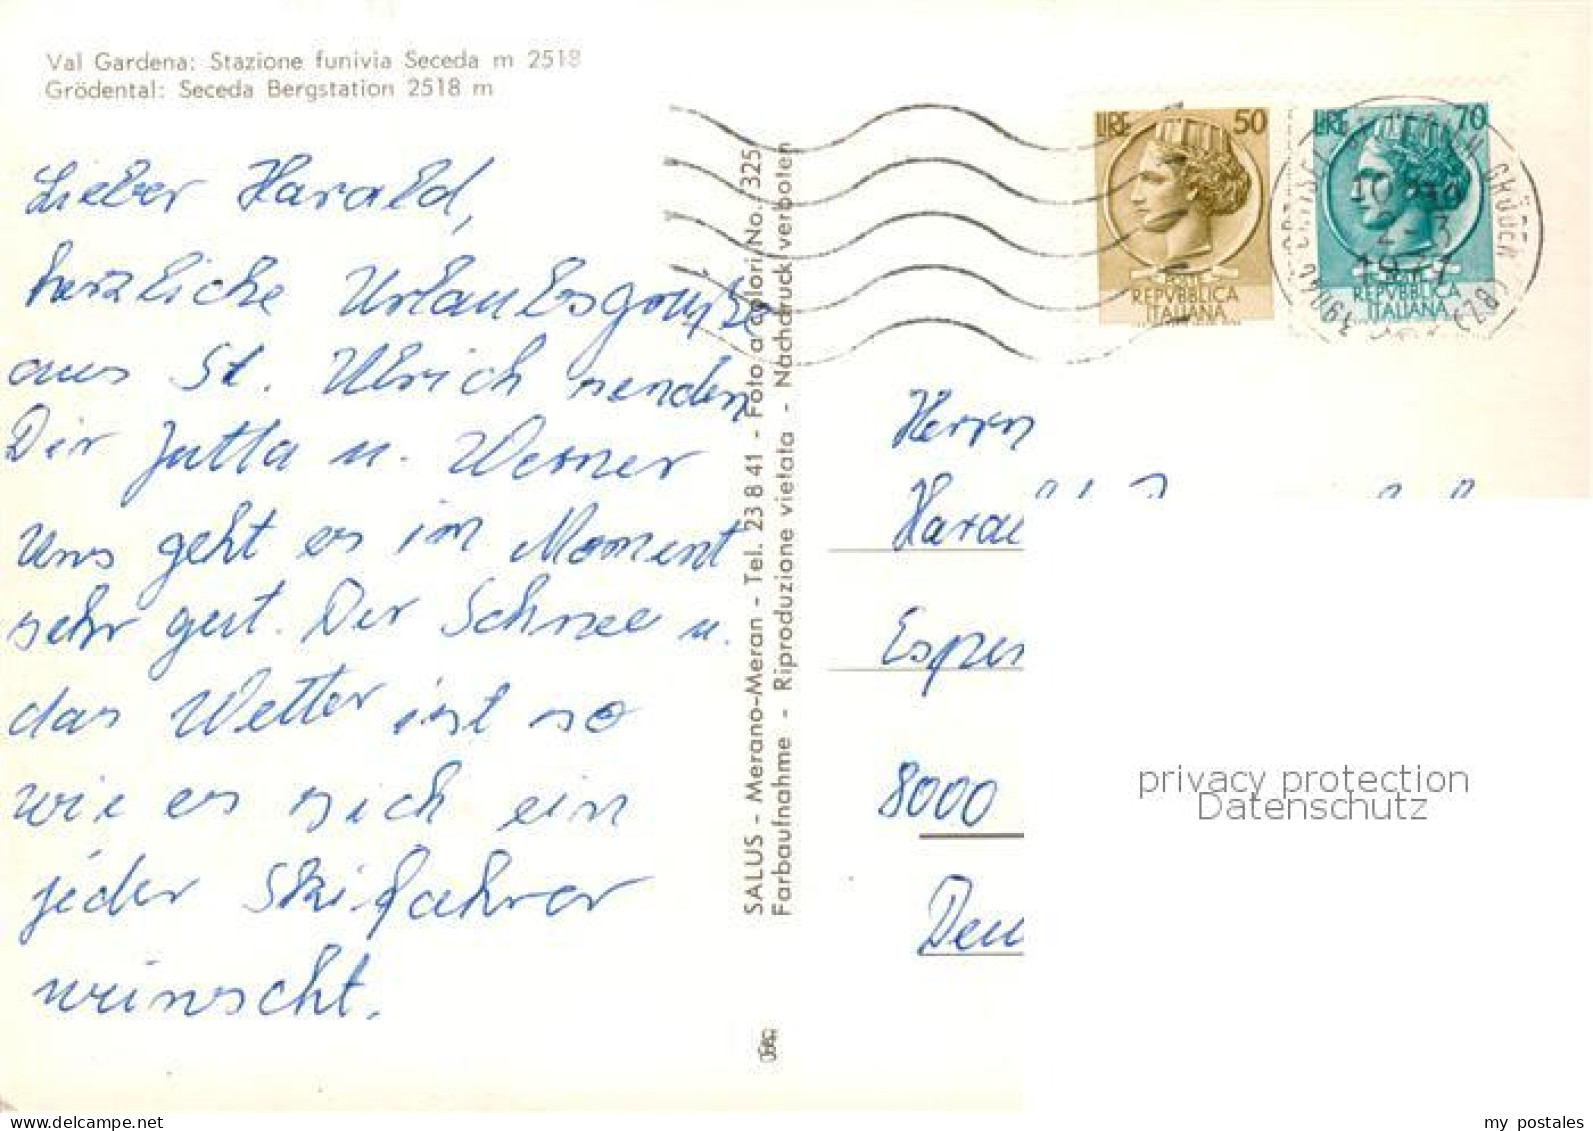 Val Gardena: Stazione funivia Seceda m 2518
Grödental: Seceda Bergstation 2518 m
Lieber Harald,
herzliche Urlaubsgrüße
aus St. Ulrich senden
Dir Jutta u. Werner
Uns geht es im Moment
sehr gut. Der Schnee u.
das Wetter ist so
wie es sich ein
jeder Skifahrer
wünscht.
SALUS - Merano-Meran - Tel. 23 8 41 - Foto a colori/No. 325
Farbaufnahme - Riproduzione vietata - Nachdruck verboten
LIRE 50
POSTE
REPVBBLICA
ITALIANA
LIRE 70
POSTE
REPVBBLICA
ITALIANA
Herrn
Haral
Esper
8000
Deu
privacy protection
Datenschutz
delcampe.net
my_postales